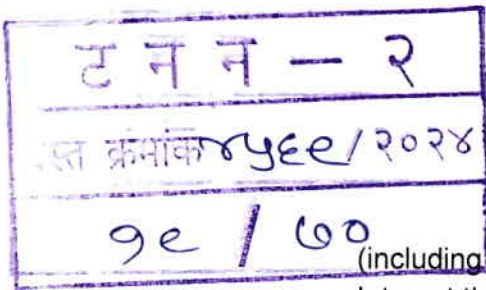 ट न न – २
दस्त क्रमांक ४५६९/२०२४
१९ / ७०
(including